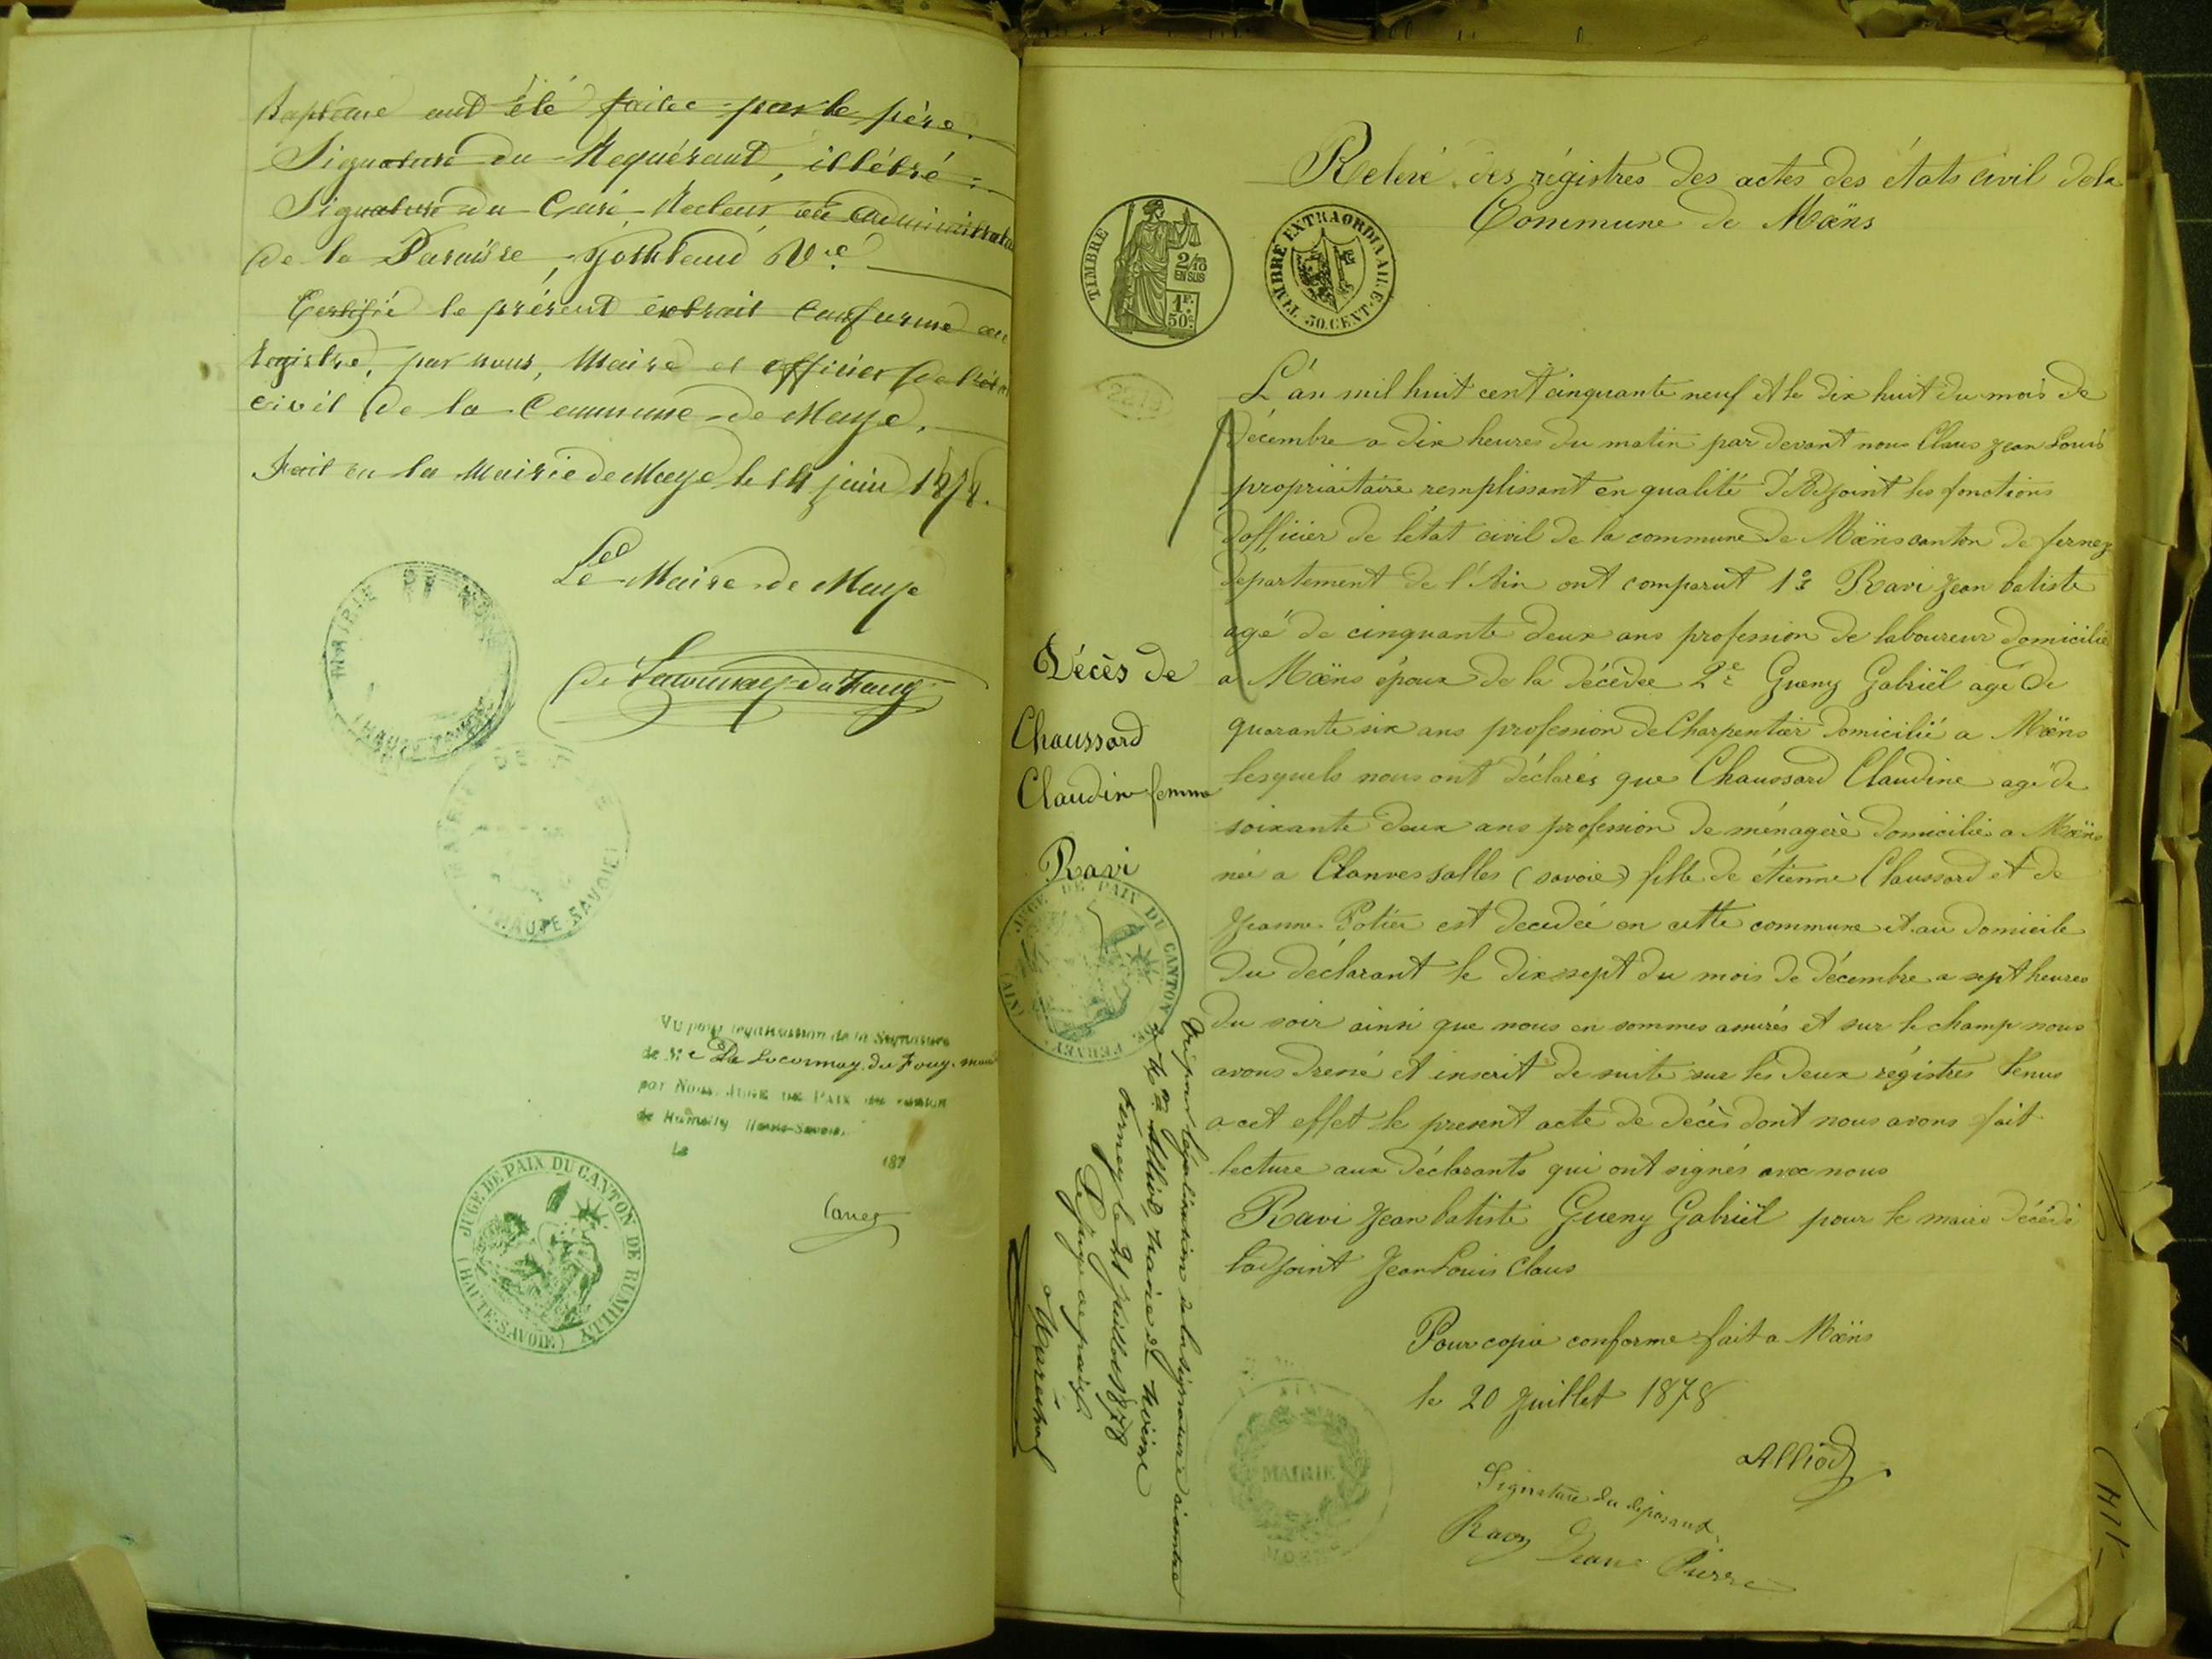 Baptême ont été faites par le père.
Signature du Requérant, illétré.
Signature du Curé-Recteur ou Administrateur
de la Paroisse,
Certifié le présent extrait conforme au
registre, par nous, Maire et officier de l'état
civil de la Commune de Moye.
Fait en la Mairie de Moye le 14 juin 1878.
Le Maire de Moye
MAIRIE DE
MAIRIE DE
(HAUTE-SAVOIE)
Vu pour légalisation de la Signature
de Mr De Lucornay du Foug, maire
par Nous, JUGE DE PAIX du canton
de Rumilly Haute-Savoie.
Le 187
JUGE DE PAIX DU CANTON DE RUMILLY
(HAUTE-SAVOIE)
Relevé des régistres des actes des états civil de la
Commune de Moëns
TIMBRE
2/10
EN SUS
1F.
50c.
TIMBRE EXTRAORDINAIRE
50 CENT.
L'an mil huit cent cinquante neuf et le dix huit du mois de
décembre a dix heures du matin par devant nous Claus Jean Louis
propriaitaire remplissant en qualité d'Adjoint les fonctions
d'officier de l'état civil de la commune de Moëns canton de ferney
departement de l'Ain ont comparut 1e Ravi Jean batiste
agé de cinquante deux ans profession de laboureur domicilié
a Moëns époux de la décédee 2e Gueny Gabriël agé de
quarante six ans profession de Charpentier domicilié a Moëns
lesquels nous ont déclarés que Chaussard Claudine agé de
soixante deux ans profession de ménagère domicilié a Moëns
née a Chanves salles (savoie) fille de étienne Chaussard et de
Jeanne Potier est decedée en cette commune et au domicile
du déclarant le dix sept du mois de décembre a sept heures
du soir ainsi que nous en sommes assurés et sur le champ nous
avons dressé et inscrit de suite sur les deux régistres tenus
a cet effet le present acte de décès dont nous avons fait
lecture aux déclarants qui ont signés avec nous
Ravi Jean batiste Gueny Gabriël pour le maire décédé
l'adjoint Jean Louis Claus
Pour copie conforme fait a Moëns
le 20 Juillet 1878
Alliod
Signature du déposant
Ravy Jean Pierre
Décès de
Chaussard
Claudine femme
Ravi
JUGE DE PAIX DU CANTON DE FERNEY
(AIN)
Vu pour légalisation de la signature ci contre
de Mr Alliod, maire de Moëns
Ferney le 21 juillet 1878
Le juge de paix
Maréchal
MAIRIE